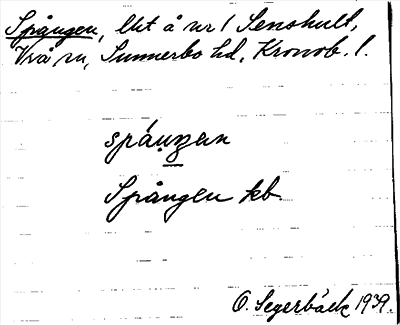 Spången, litet å nr 1 Senshult,
Vrå sn, Sunnerbo hd, Kronob. l.
spáŋən
Spången kb.
O. Segerbäck 1939.